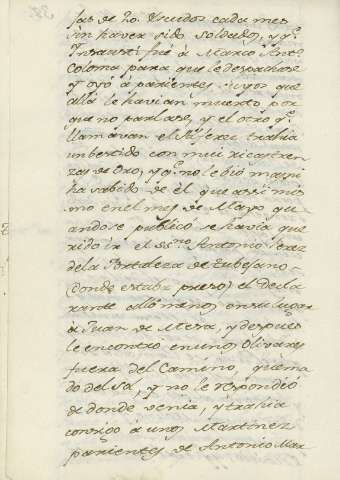 jas de 20 escudos cada mes
sin haver sido soldado, y q.e
Insausti fué á Marco Ant.o
Coloma para que le despachase
y oyó á parientes suyos que
allá le havian muerto por
que no parlase, y el otro q.e
llamavan el Alferez trahia
un bestido con mui ricas tren
zas de oro, y q.e no le bió mas, ni
ha sabido de él, que assi mis
mo en el mes de Mayo qu
ando se publicó se havia que
rido ir el S.rio Antonio Perez
de la Fortaleza de Turegano
(donde estaba preso) el decla
rante halló menos en su lugar
á Juan de Mesa, y despues
le encontró en unos Olivares
fuera del Camino, quema
do del Sol, y no le respondió
de donde venia, y trahia
consigo á unos Martinez
parientes de Antonio Mar